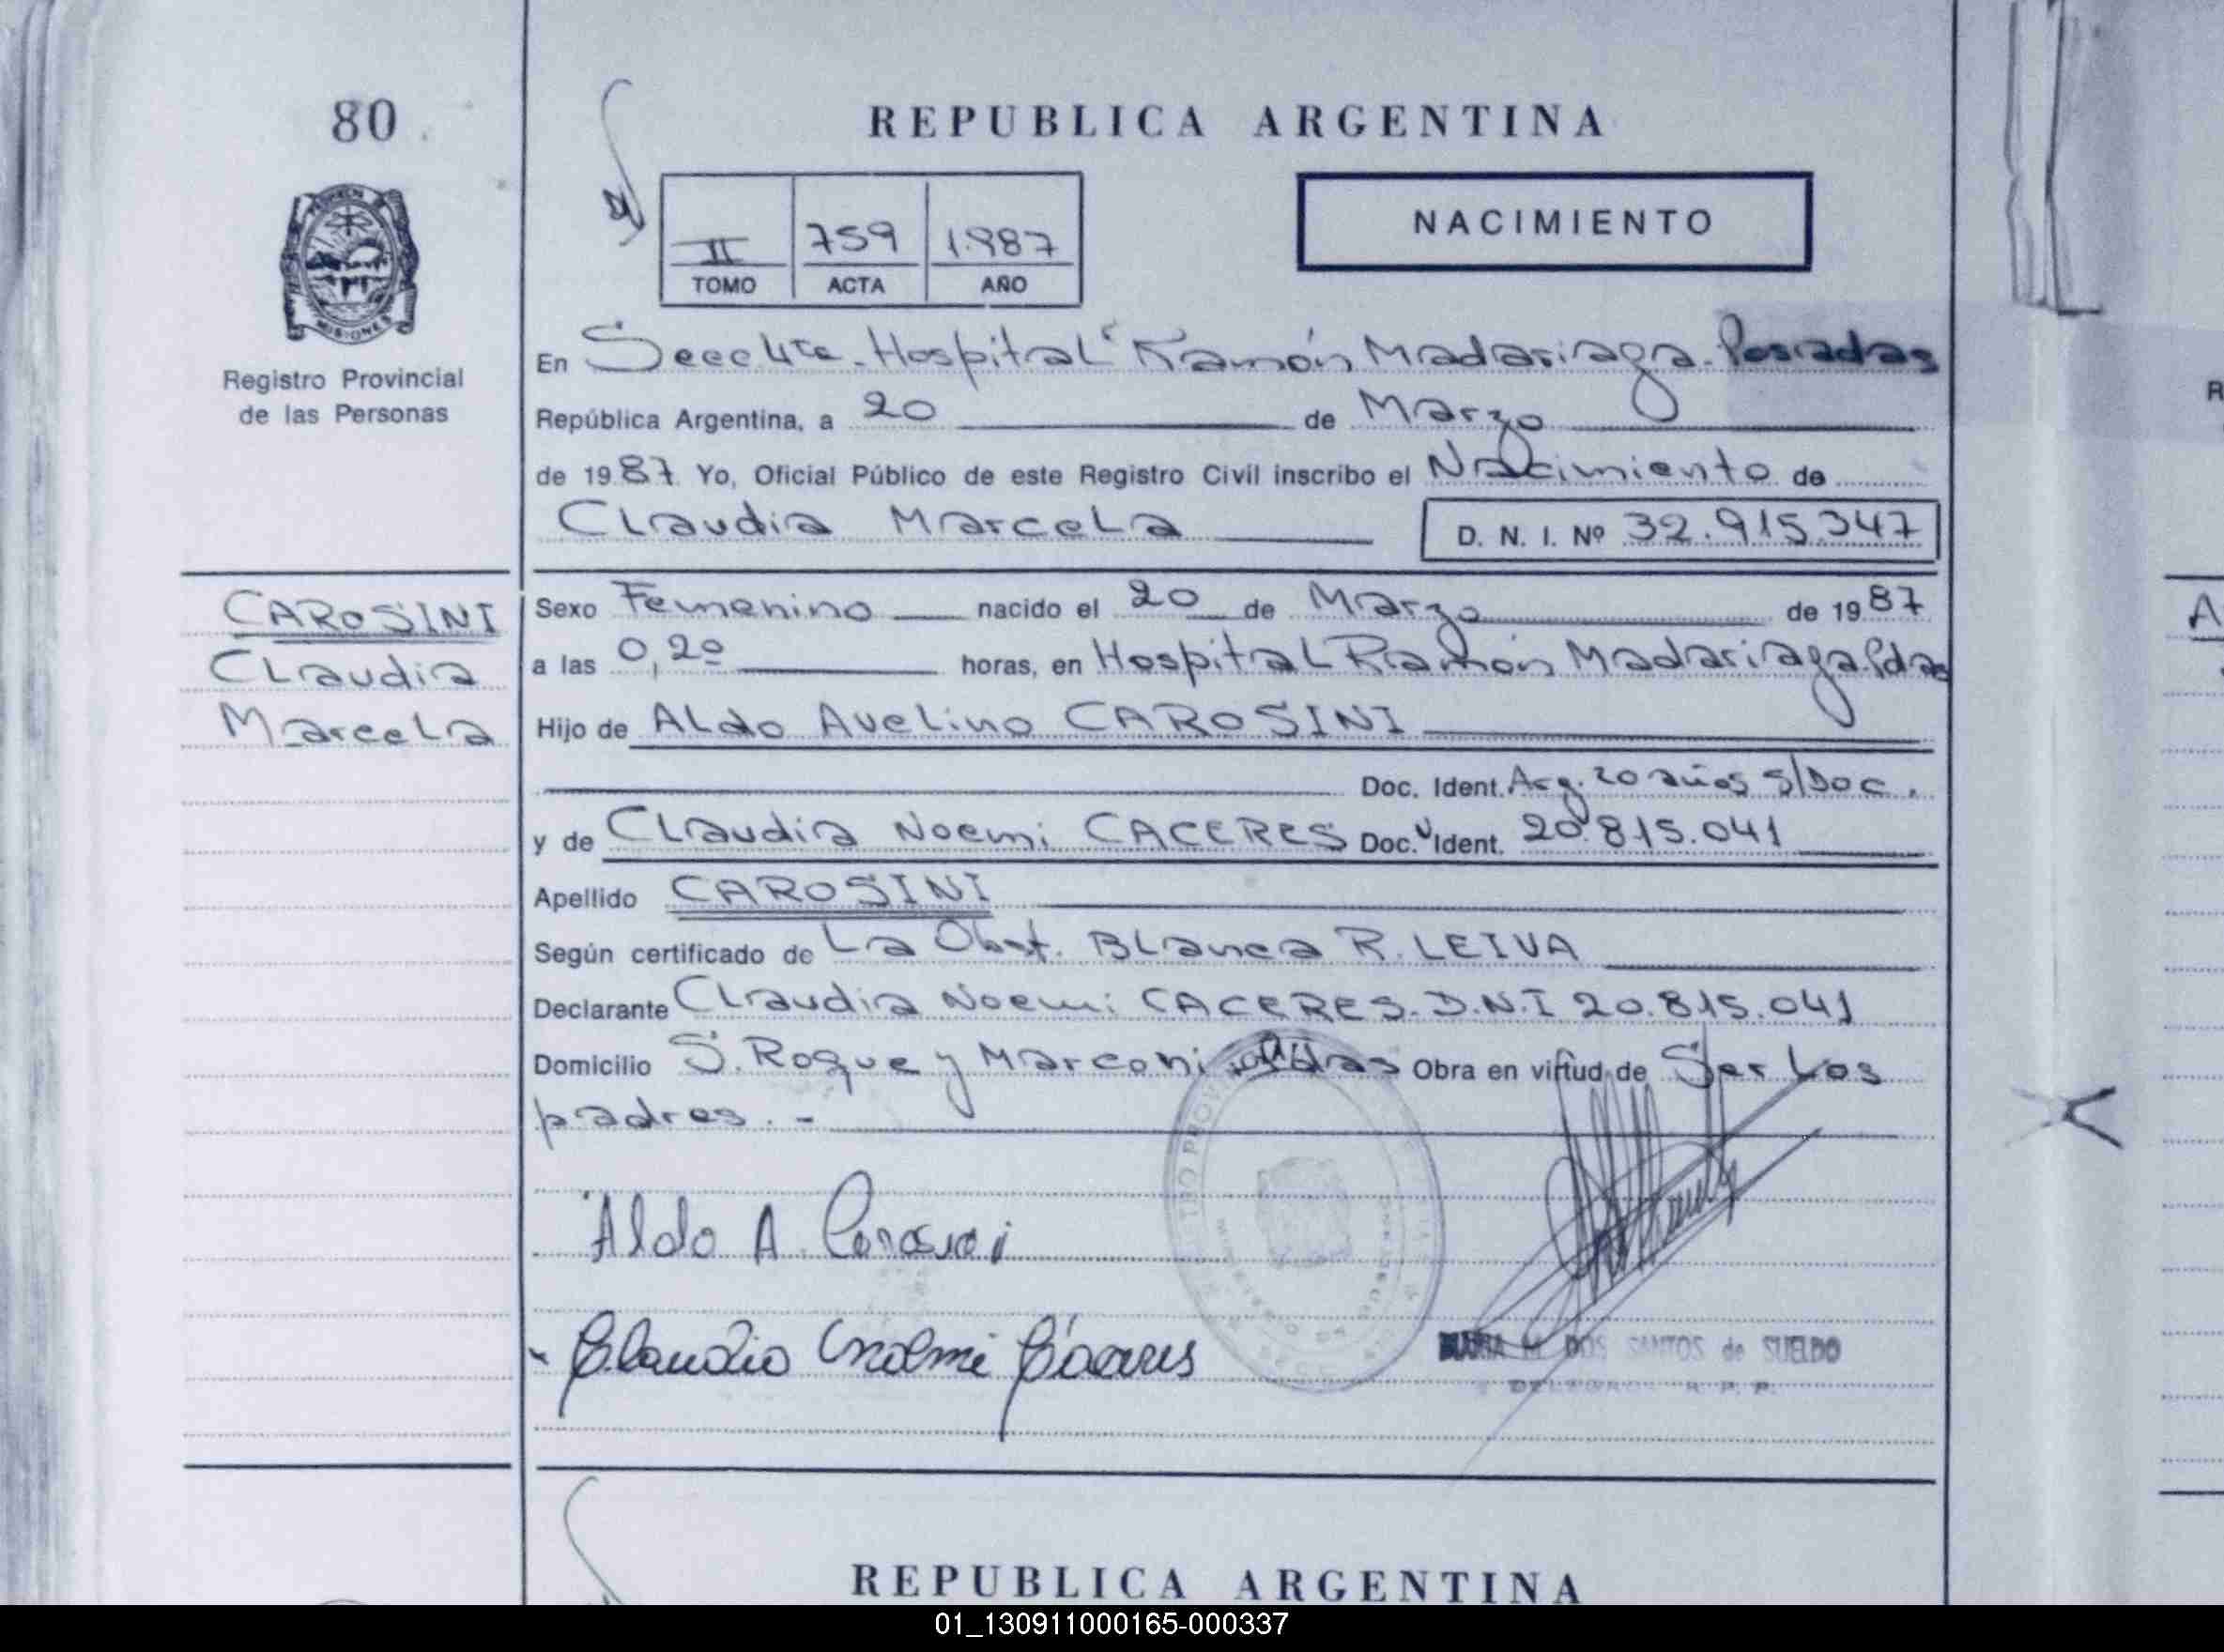 80
REPUBLICA ARGENTINA
II 759 1.987
TOMO ACTA AÑO
NACIMIENTO
MISIONES
Registro Provincial
de las Personas
En Secc 4ta. Hospital "Ramón Madariaga. Posadas
República Argentina, a 20 de Marzo
de 1987 Yo, Oficial Público de este Registro Civil inscribo el Nacimiento de
Claudia Marcela
D. N. I. Nº 32.915.347
CAROSINI
Claudia
Marcela
Sexo Femenino nacido el 20 de Marzo de 1987
a las 0,20 horas, en Hospital Ramón Madariaga. Pdas
Hijo de Aldo Avelino CAROSINI
Doc. Ident. Arg. 20 años s/Doc.
y de Claudia Noemi CACERES Doc. Ident. 20.815.041
Apellido CAROSINI
Según certificado de La Obst. Blanca R. LEIVA
Declarante Claudia Noemi CACERES. D.N.I 20.815.041
Domicilio S. Roque y Marconi Pdas Obra en virtud de Ser Los
padres. -
Aldo A. Carosini
Claudia Noemi Cáceres
MARIA M. DOS SANTOS de SUELDO
REPUBLICA ARGENTINA
01_130911000165-000337